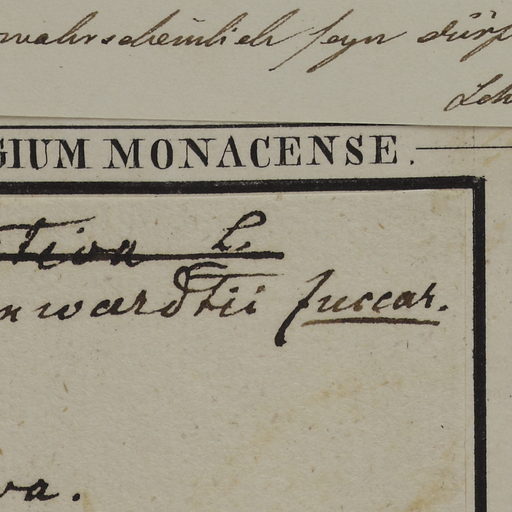 wahrscheinlich seyn dürf
Sch
GIUM MONACENSE.
tiva L.
nwardtii Zuccar.
va.